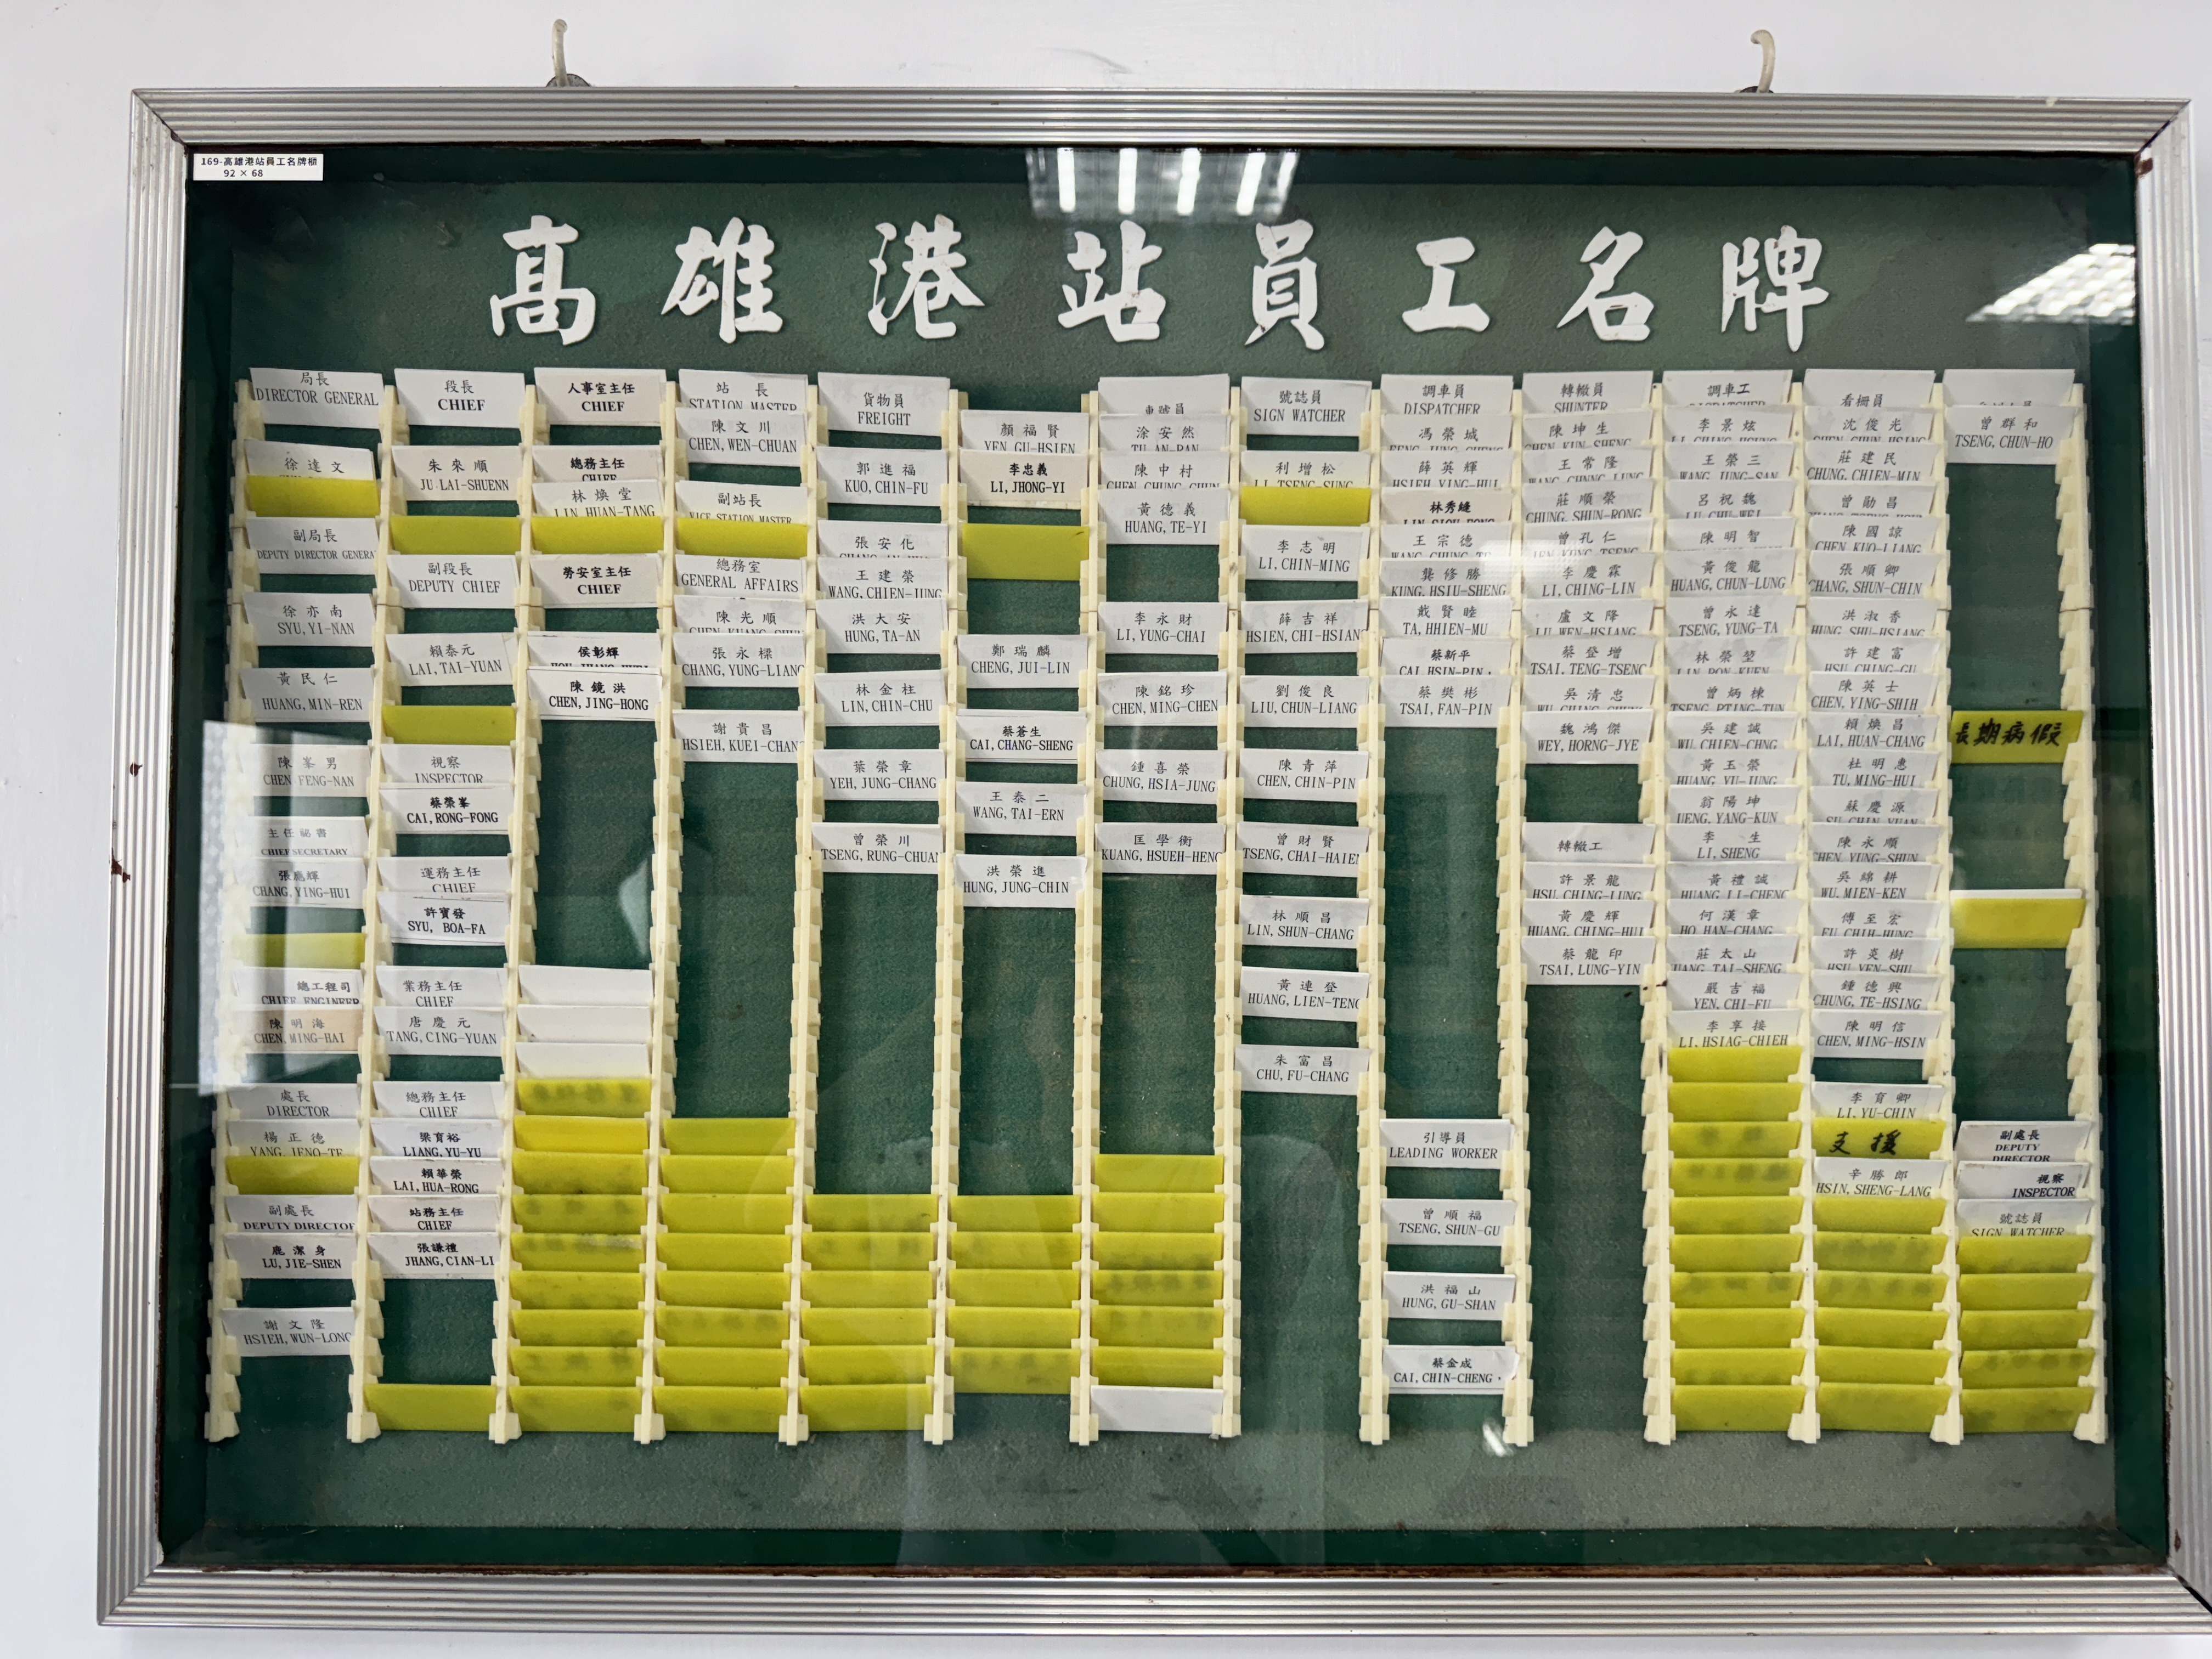 169-高雄港站員工名牌櫃
92 × 68
高雄港站員工名牌
局長
DIRECTOR GENERAL
徐達文
副局長
DEPUTY DIRECTOR GENERAL
徐亦南
SYU, YI-NAN
黃民仁
HUANG, MIN-REN
陳峯男
CHEN FENG-NAN
主任祕書
CHIEF SECRETARY
張應輝
CHANG, YING-HUI
總工程司
CHIEF ENGINEER
陳明海
CHEN, MING-HAI
處長
DIRECTOR
楊正德
副處長
DEPUTY DIRECTOR
鹿潔身
LU, JIE-SHEN
謝文隆
HSIEH, WUN-LONG
段長
CHIEF
朱來順
JU LAI-SHUENN
副段長
DEPUTY CHIEF
賴泰元
LAI, TAI-YUAN
視察
INSPECTOR
蔡榮峯
CAI, RONG-FONG
運務主任
CHIEF
許寶發
SYU, BOA-FA
業務主任
CHIEF
唐慶元
TANG, CING-YUAN
總務主任
CHIEF
梁育裕
LIANG, YU-YU
賴華榮
LAI, HUA-RONG
站務主任
CHIEF
張謙禮
JHANG, CIAN-LI
人事室主任
CHIEF
總務主任
CHIEF
林煥堂
LIN HUAN-TANG
勞安室主任
CHIEF
侯彰輝
陳鏡洪
CHEN, JING-HONG
站長
STATION MASTER
陳文川
CHEN, WEN-CHUAN
副站長
VICE STATION MASTER
總務室
GENERAL AFFAIRS
陳光順
張永樑
CHANG, YUNG-LIANG
謝貴昌
HSIEH, KUEI-CHAN
貨物員
FREIGHT
郭進福
KUO, CHIN-FU
張安化
王建榮
WANG, CHIEN-JUNG
洪大安
HUNG, TA-AN
林金柱
LIN, CHIN-CHU
葉榮章
YEH, JUNG-CHANG
曾榮川
TSENG, RUNG-CHUAN
顏福賢
YEN, GU-HSIEN
李忠義
LI, JHONG-YI
鄭瑞麟
CHENG, JUI-LIN
蔡蒼生
CAI, CHANG-SHENG
王泰二
WANG, TAI-ERN
洪榮進
HUNG, JUNG-CHIN
車號員
涂安然
TU AN-RAN
陳中村
CHEN, CHUNG-CHUN
黃德義
HUANG, TE-YI
李永財
LI, YUNG-CHAI
陳銘珍
CHEN, MING-CHEN
鍾喜榮
CHUNG, HSIA-JUNG
匡學衡
KUANG, HSUEH-HENG
號誌員
SIGN WATCHER
利增松
LI, TSENG-SUNG
李志明
LI, CHIN-MING
薛吉祥
HSIEN, CHI-HSIANG
劉俊良
LIU, CHUN-LIANG
陳青萍
CHEN, CHIN-PIN
曾財賢
TSENG, CHAI-HAIEN
林順昌
LIN, SHUN-CHANG
黃連登
HUANG, LIEN-TENG
朱富昌
CHU, FU-CHANG
調車員
DISPATCHER
馮榮城
薛英輝
HSIEH YING-HUI
林秀縫
王宗德
龔修勝
KUNG, HSIU-SHENG
戴賢睦
TA, HHIEN-MU
蔡新平
CAI, HSIN-PIN
蔡樊彬
TSAI, FAN-PIN
引導員
LEADING WORKER
曾順福
TSENG, SHUN-GU
洪福山
HUNG, GU-SHAN
蔡金成
CAI, CHIN-CHENG
轉轍員
SHUNTER
陳坤生
CHEN KUN-SHENG
王常隆
莊順榮
CHUNG, SHUN-RONG
曾孔仁
李慶霖
LI, CHING-LIN
盧文隆
LU WEN-HSIANG
蔡登增
TSAI, TENG-TSENG
吳清忠
魏鴻傑
WEY, HORNG-JYE
轉轍工
許景龍
HSU, CHING-LUNG
黃慶輝
HUANG, CHING-HUI
蔡龍印
TSAI, LUNG-YIN
調車工
李景炫
王榮三
WANG, JUNG-SAN
呂祝魏
LU CHU-WEI
陳明智
黃俊龍
HUANG, CHUN-LUNG
曾永達
TSENG, YUNG-TA
林榮堃
曾炳棟
吳建誠
黃玉榮
HUANG YU-JUNG
翁陽坤
UENG, YANG-KUN
李生
LI, SHENG
黃禮誠
HUANG LI-CHENG
何漢章
HO HAN-CHANG
莊太山
嚴吉福
YEN, CHI-FU
李享接
LI, HSIAG-CHIEH
看柵員
沈俊光
莊建民
CHUNG, CHIEN-MIN
曾勛昌
陳國諒
CHEN KUO-LIANG
張順卿
CHANG, SHUN-CHIN
洪淑香
HUNG SHU-HSIANG
許建富
陳英士
CHEN, YING-SHIH
賴煥昌
LAI, HUAN-CHANG
杜明惠
TU, MING-HUI
蘇慶源
陳永順
CHEN, YUNG-SHUN
吳綿耕
WU, MIEN-KEN
傅至宏
FU CHIH-HUNG
許炎樹
HSU YEN-SHU
鍾德興
CHUNG, TE-HSING
陳明信
CHEN, MING-HSIN
李育卿
LI, YU-CHIN
支援
辛勝郎
HSIN, SHENG-LANG
曾群和
TSENG, CHUN-HO
長期病假
副處長
DEPUTY
DIRECTOR
視察
INSPECTOR
號誌員
SIGN WATCHER